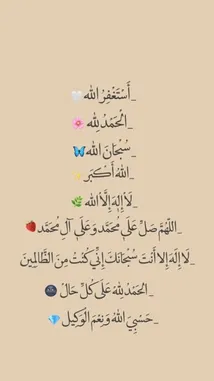 _أَسْتَغْفِرُ الله🤍
_الْحَمْدُ لِلّه🌸
_سُبْحَانَ الله🦋
_اللهُ أَكْبَر⭐
_لَا إِلَهَ إِلَّا الله🌿
_اللّهُمَّ صَلِّ عَلَى مُحَمَّد وَعَلَى آلِ مُحَمَّد🍓
_لَا إِلَهَ إِلَّا أَنْتَ سُبْحَانَكَ إِنِّي كُنْتُ مِنَ الظَّالِمِينَ
_الحَمْدُ لِلّه عَلَى كُلِّ حَالٌ🌚
_حَسْبِيَ اللهُ وَنِعْمَ الْوَكِيل💎